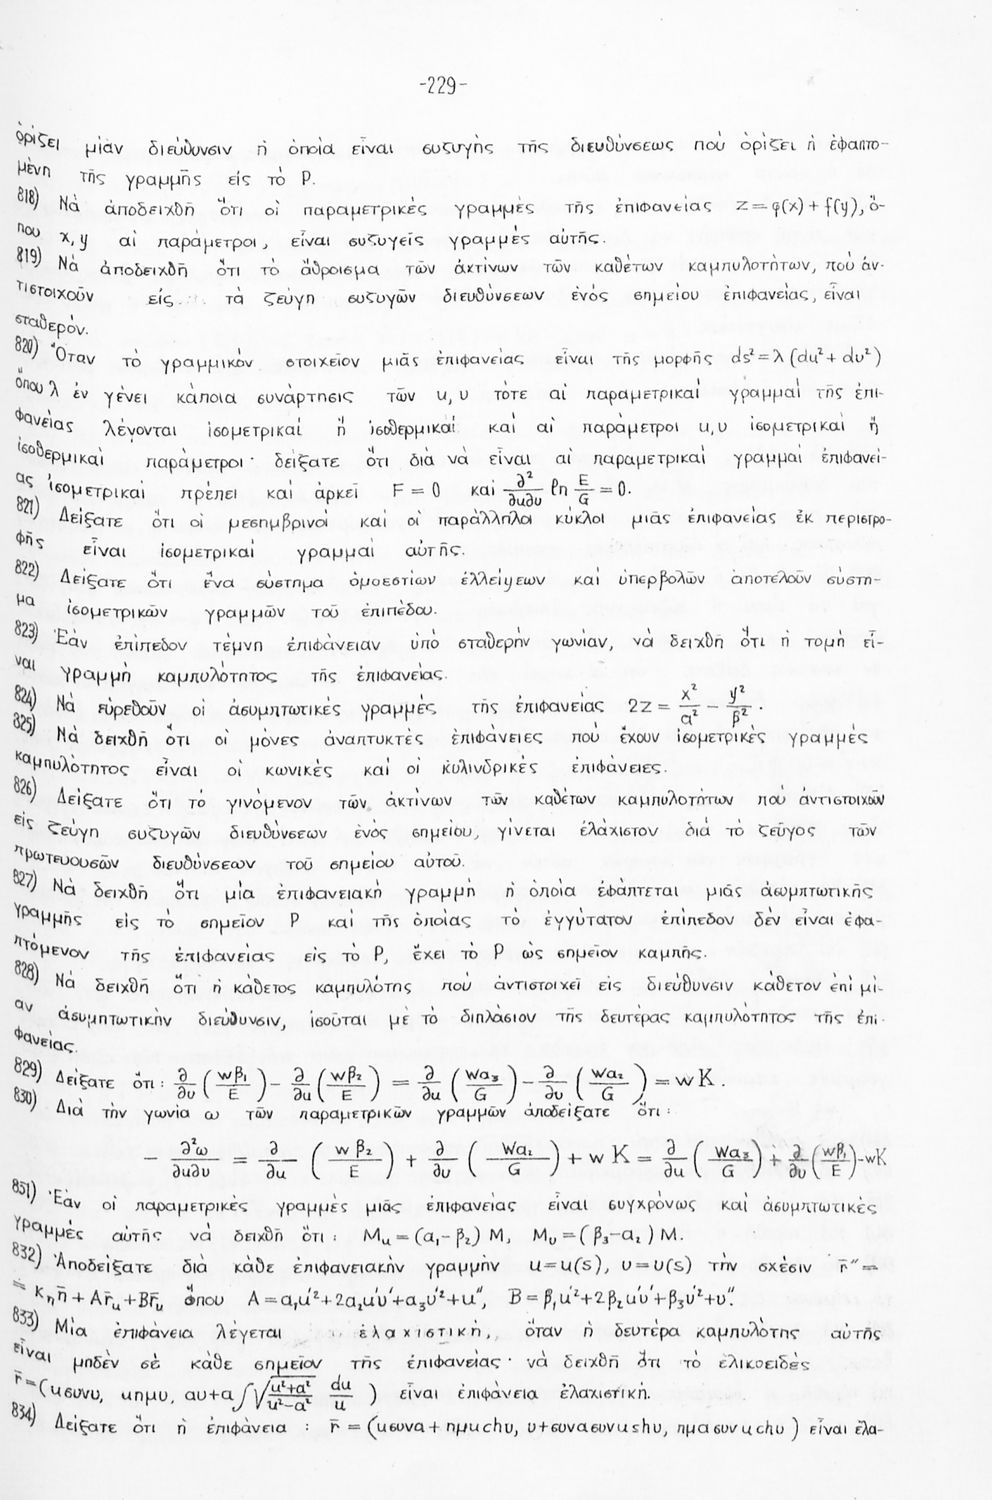 -229-
ὁρίζει μίαν διεύθυνσιν ἡ ὁποία εἶναι συζυγής τῆς διευθύνσεως πού ὁρίζει ἡ ἐφαπτο-
μένη τῆς γραμμῆς εἰς τό P.
818) Νά ἀποδειχθῆ ὅτι οἱ παραμετρικές γραμμές τῆς ἐπιφανείας z=φ(x)+f(y), ὅ-
που x,y αἱ παράμετροι, εἶναι συζυγεῖς γραμμές αὐτῆς.
819) Νά ἀποδειχθῆ ὅτι τό ἄθροισμα τῶν ἀκτίνων τῶν καθέτων καμπυλοτήτων, πού ἀν-
τιστοιχοῦν εἰς τά ζεύγη συζυγῶν διευθύνσεων ἑνός σημείου ἐπιφανείας, εἶναι
σταθερόν.
820) Ὅταν τό γραμμικόν στοιχεῖον μιᾶς ἐπιφανείας εἶναι τῆς μορφῆς ds²=λ(du²+dυ²)
ὅπου λ ἐν γένει κάποια συνάρτησις τῶν u,υ τότε αἱ παραμετρικαί γραμμαί τῆς ἐπι-
φανείας λέγονται ἰσομετρικαί ἤ ἰσοθερμικαί καί αἱ παράμετροι u,υ ἰσομετρικαί ἤ
ἰσοθερμικαί παράμετροι· δείξατε ὅτι διά νά εἶναι αἱ παραμετρικαί γραμμαί ἐπιφανεί-
ας ἰσομετρικαί πρέπει καί ἀρκεῖ F=0 καί ∂²/∂u∂υ ℓn E/G =0.
821) Δείξατε ὅτι οἱ μεσημβρινοί καί οἱ παράλληλοι κύκλοι μιᾶς ἐπιφανείας ἐκ περιστρο-
φῆς εἶναι ἰσομετρικαί γραμμαί αὐτῆς.
822) Δείξατε ὅτι ἕνα σύστημα ὁμοεστίων ἐλλείψεων καί ὑπερβολῶν ἀποτελοῦν σύστη-
μα ἰσομετρικῶν γραμμῶν τοῦ ἐπιπέδου.
823) Ἐάν ἐπίπεδον τέμνη ἐπιφάνειαν ὑπό σταθερήν γωνίαν, νά δειχθῆ ὅτι ἡ τομή εἶ-
ναι γραμμή καμπυλότητος τῆς ἐπιφανείας.
824) Νά εὑρεθοῦν οἱ ἀσυμπτωτικές γραμμές τῆς ἐπιφανείας 2z = x²/α² − y²/β².
825) Νά δειχθῆ ὅτι οἱ μόνες ἀναπτυκτές ἐπιφάνειες πού ἔχουν ἰσομετρικές γραμμές
καμπυλότητος εἶναι οἱ κωνικές καί οἱ κυλινδρικές ἐπιφάνειες.
826) Δείξατε ὅτι τό γινόμενον τῶν ἀκτίνων τῶν καθέτων καμπυλοτήτων πού ἀντιστοιχοῦν
εἰς ζεύγη συζυγῶν διευθύνσεων ἑνός σημείου, γίνεται ἐλάχιστον διά τό ζεῦγος τῶν
πρωτευουσῶν διευθύνσεων τοῦ σημείου αὐτοῦ.
827) Νά δειχθῆ ὅτι μία ἐπιφανειακή γραμμή ἡ ὁποία ἐφάπτεται μιᾶς ἀσυμπτωτικῆς
γραμμῆς εἰς τό σημεῖον P καί τῆς ὁποίας τό ἐγγύτατον ἐπίπεδον δέν εἶναι ἐφα-
πτόμενον τῆς ἐπιφανείας εἰς τό P, ἔχει τό P ὡς σημεῖον καμπῆς.
828) Νά δειχθῆ ὅτι ἡ κάθετος καμπυλότης πού ἀντιστοιχεῖ εἰς διεύθυνσιν κάθετον ἐπί μί-
αν ἀσυμπτωτικήν διεύθυνσιν, ἰσοῦται μέ τό διπλάσιον τῆς δευτέρας καμπυλότητος τῆς ἐπι-
φανείας.
829) Δείξατε ὅτι: ∂/∂υ (wβ₁/E) − ∂/∂u (wβ₂/E) = ∂/∂u (wα₃/G) − ∂/∂υ (wα₂/G) = wK.
830) Διά τήν γωνία ω τῶν παραμετρικῶν γραμμῶν ἀποδείξατε ὅτι:
− ∂²ω/∂u∂υ = ∂/∂u (wβ₂/E) + ∂/∂υ (wα₂/G) + wK = ∂/∂u (wα₃/G) + ∂/∂υ (wβ₁/E) − wK
831) Ἐάν οἱ παραμετρικές γραμμές μιᾶς ἐπιφανείας εἶναι συγχρόνως καί ἀσυμπτωτικές
γραμμές αὐτῆς νά δειχθῆ ὅτι: Mu=(α₁-β₂)M, Mυ=(β₃-α₂)M.
832) Ἀποδείξατε διά κάθε ἐπιφανειακήν γραμμήν u=u(s), υ=υ(s) τήν σχέσιν r̄″=
= κₙn̄ + Ar̄u+Br̄υ ὅπου A=α₁u′²+2α₂u′υ′+α₃υ′²+u″, B=β₁u′²+2β₂u′υ′+β₃υ′²+υ″.
833) Μία ἐπιφάνεια λέγεται ἐλαχιστική, ὅταν ἡ δευτέρα καμπυλότης αὐτῆς
εἶναι μηδέν σέ κάθε σημεῖον τῆς ἐπιφανείας· νά δειχθῆ ὅτι τό ἑλικοειδές
r̄=(uσυνυ, uημυ, αυ+α∫√(u²+α²/u²-α²) du/u ) εἶναι ἐπιφάνεια ἐλαχιστική.
834) Δείξατε ὅτι ἡ ἐπιφάνεια : r̄=(uσυνα+ημuchυ, υ+συνασυνushυ, ημασυνuchυ) εἶναι ἐλα-